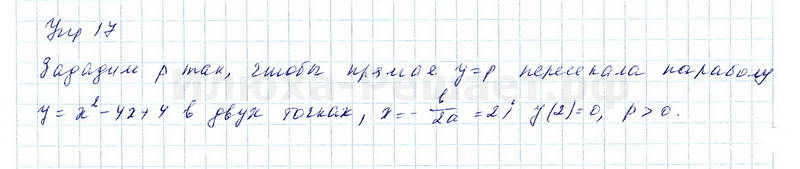 Упр 17
Зададим p так, чтобы прямая y=p пересекала параболу
y = x² - 4x + 4 в двух точках, x = - b/2a = 2; y(2)=0, p > 0.